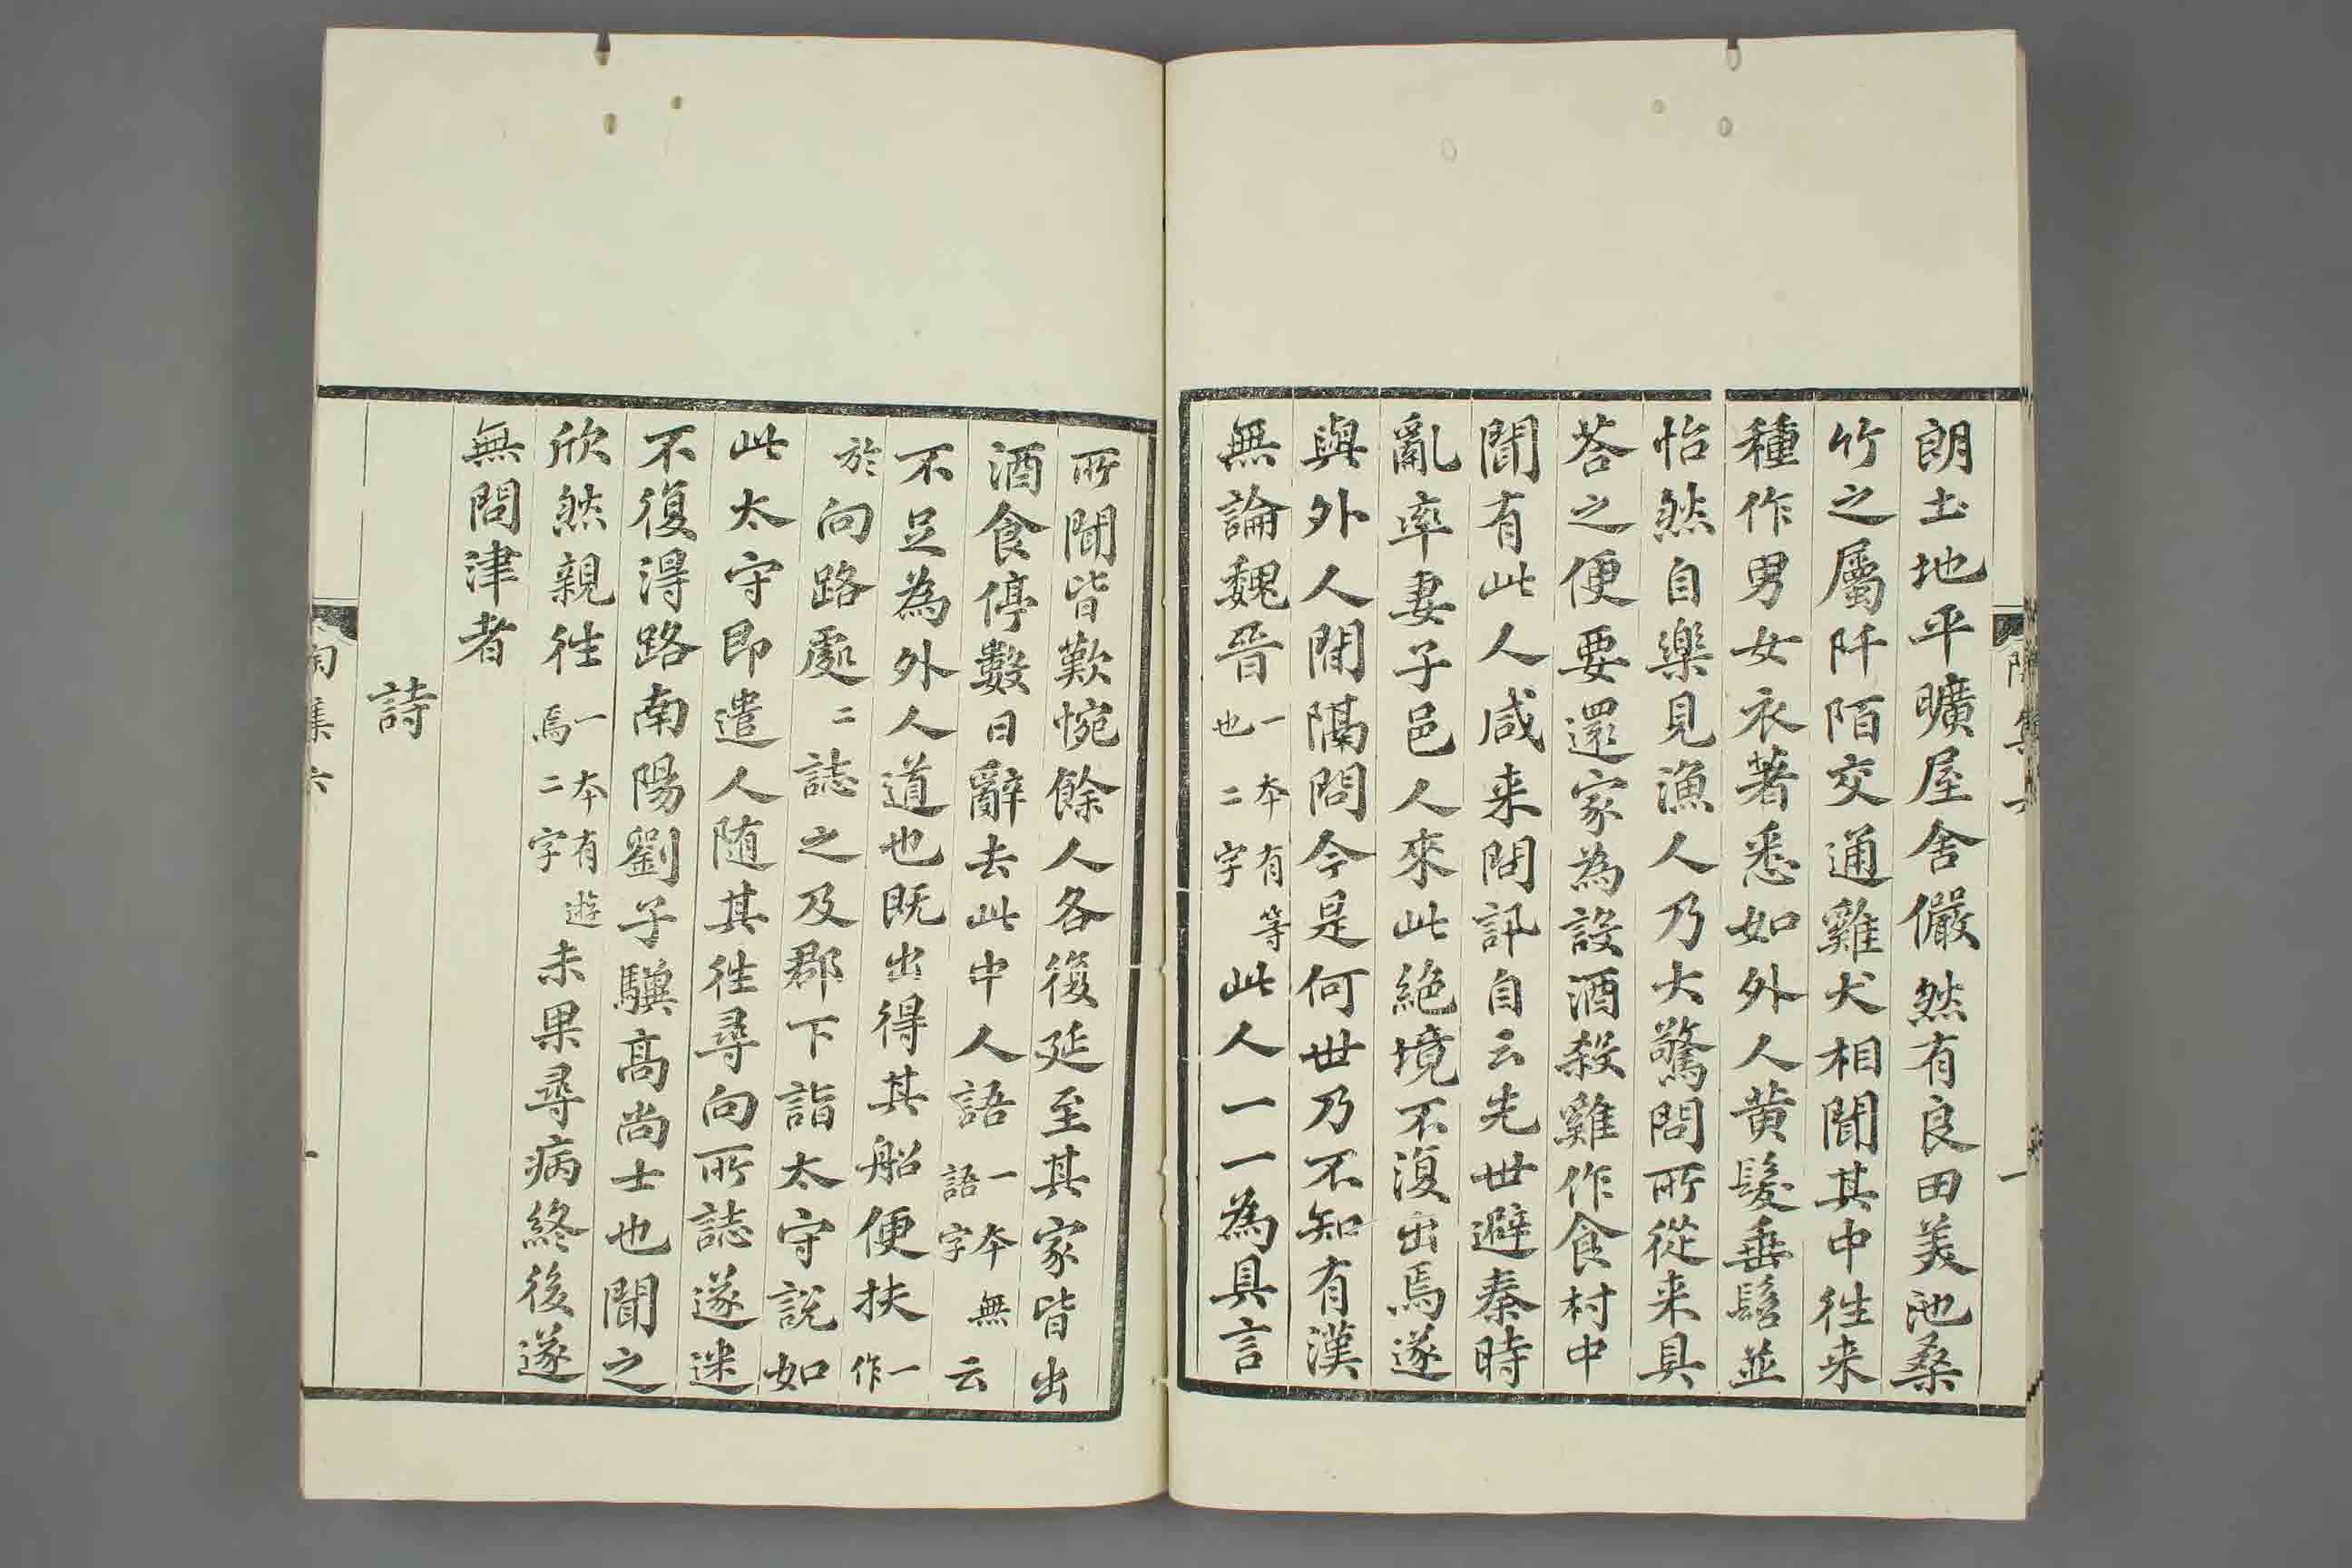 朗土地平曠屋舍儼然有良田美池桑
竹之屬阡陌交通雞犬相聞其中往来
種作男女衣著悉如外人黄髮垂髫並
怡然自樂見漁人乃大驚問所從来具
荅之便要還家為設酒殺雞作食村中
聞有此人咸来問訊自云先世避秦時
亂率妻子邑人來此絶境不復出焉遂
與外人間隔問今是何世乃不知有漢
無論魏晉一本有等也二字此人一一為具言
所聞皆歎惋餘人各復延至其家皆出
酒食停數日辭去此中人語一本無語字云
不足為外人道也既出得其船便扶一作
於向路處二誌之及郡下詣太守説如
此太守即遣人随其往尋向所誌遂迷
不復得路南陽劉子驥高尚士也聞之
欣然親往一本有遊焉二字未果尋病終後遂
無問津者
詩
陶集六